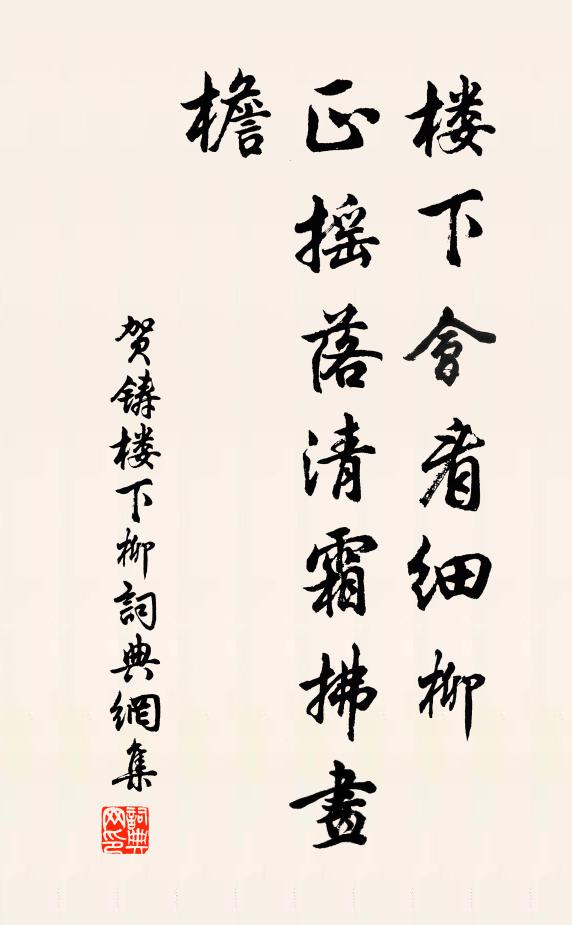 楼下會看细柳
正摇落清霜拂畫
檐
贺鋳楼下柳詞典網集
詞典網印